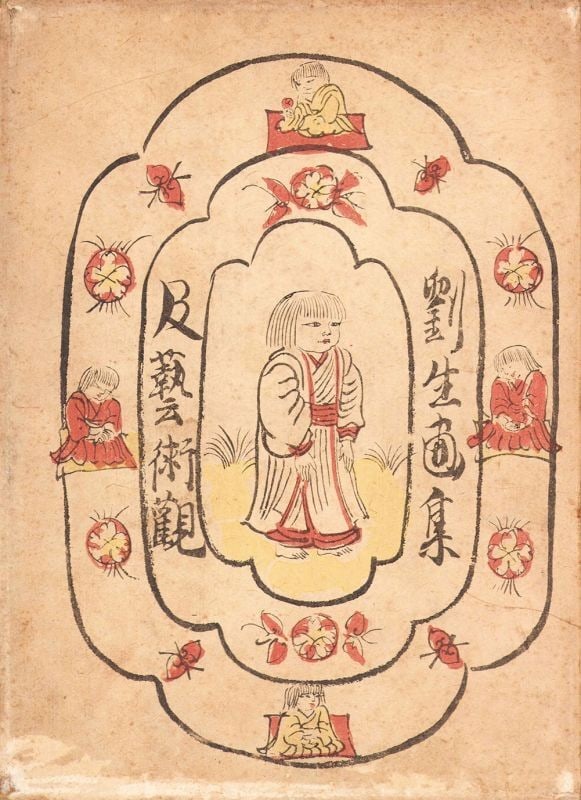 劉生画集
及藝術觀